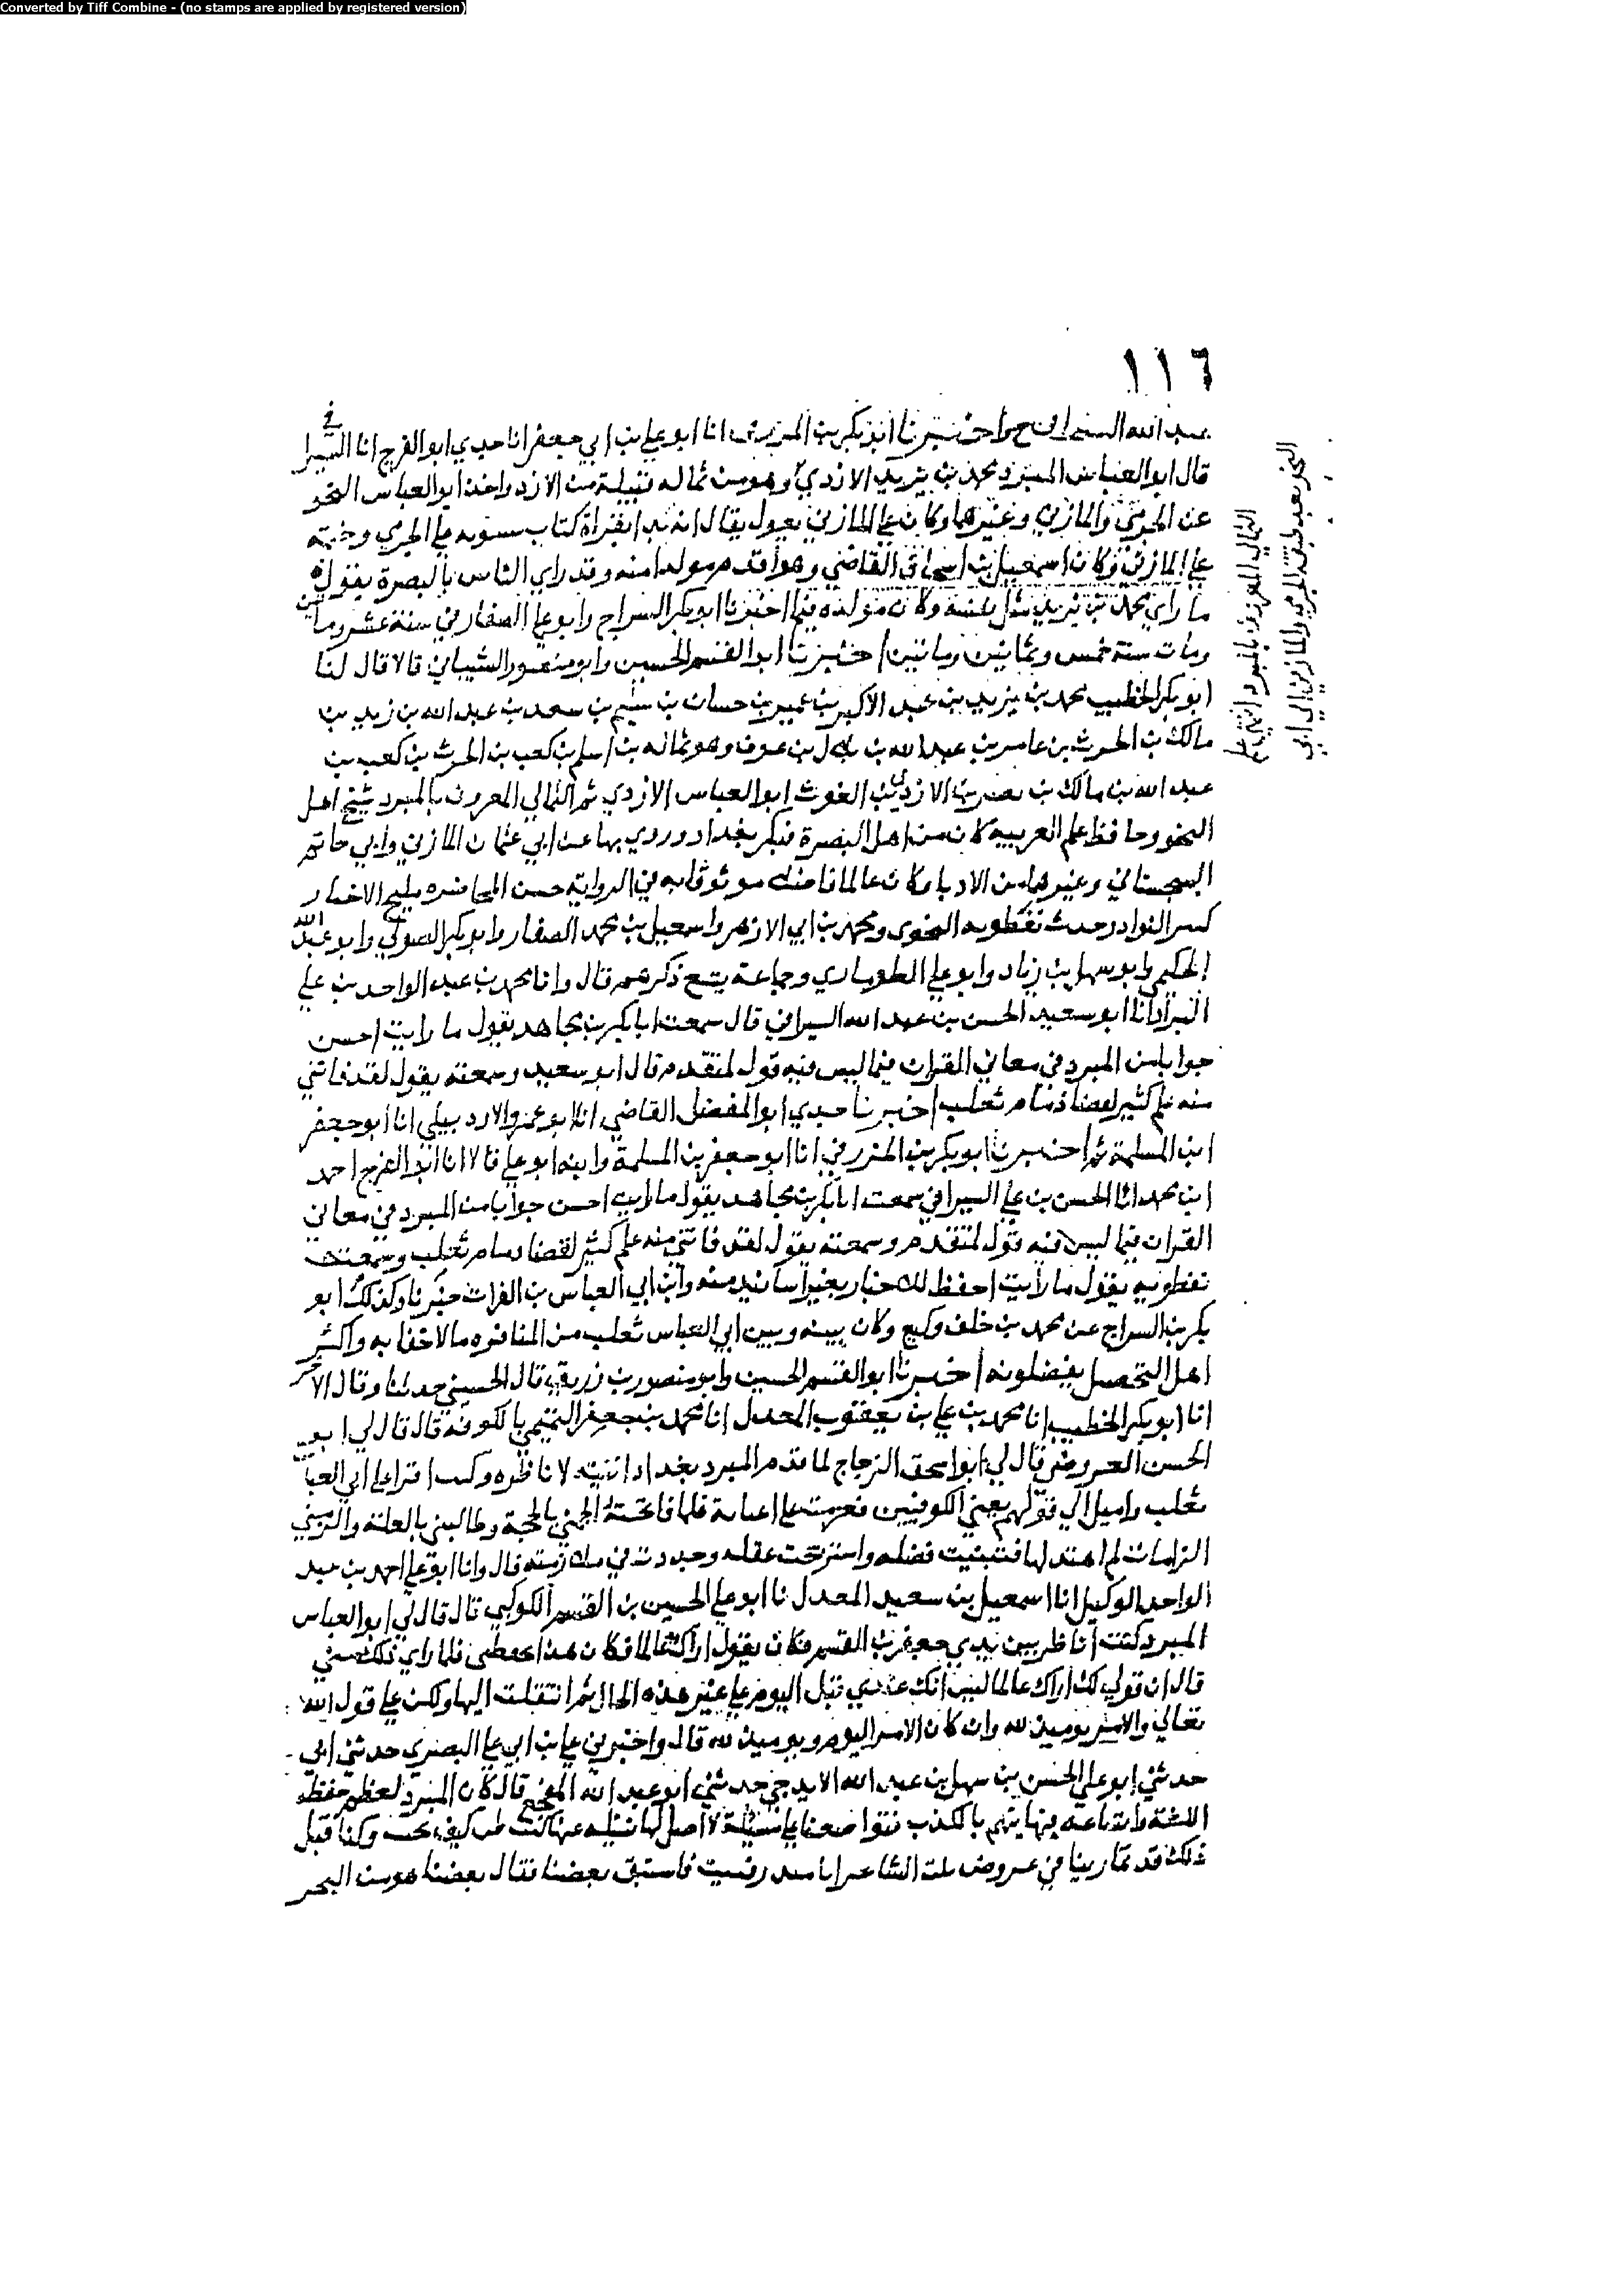 Converted by Tiff Combine - (no stamps are applied by registered version)
١١٦
عبد الله السنجي ح واخبرنا ابو بكر بن المزرفي انا ابو علي بن ابي جعفر انا جدي ابو الفرج انا السيرافي
قال ابو العباس المبرد محمد بن يزيد الازدي وهو من ثماله قبيلة من الازد واخذ ابو العباس النحو
عن الجرمي والمازني وغيرهما وكان علي المازني يعول يقال انه بدا بقراة كتاب سيبويه علي الجرمي وختمه
علي المازني وكان اسمعيل بن اسحاق القاضي وهو اقدم مولدا منه وقد راي الناس بالبصرة يقول
ما راي محمد بن يزيد مثل نفسه وكان مولده فيما اخبرنا ابو بكر السراج وابو علي الصفار في سنة عشر وماتين
ومات سنة خمس وثمانين وماتين اخبرنا ابو القسم الحسين وابو منصور الشيباني قالا قال لنا
ابو بكر الخطيب محمد بن يزيد بن عبد الاكبر بن عمير بن حسان بن سليم بن سعد بن عبد الله بن زيد بن
مالك بن الحرث بن عامر بن عبد الله بن بلال بن عوف وهو ثماله بن اسلم بن كعب بن الحرث بن كعب بن
عبد الله بن مالك بن نصر بن الازد بن الغوث ابو العباس الازدي ثم الثمالي المعروف بالمبرد شيخ اهل
النحو وحافظ علم العربية كان من اهل البصرة فسكن بغداد وروي بها عن ابي عثمان المازني وابي حاتم
السجستاني وغيرهما من الادبا وكان عالما فاضلا موثوقا به في الرواية حسن المحاضره مليح الاخبار
كسر النوادر حدث نفطويه النحوى ومحمد بن ابي الازهر واسمعيل بن محمد الصفار وابو بكر الصولي وابو عبد الله
الحكيمي وابو سهل بن زياد وابو علي الطوماري وجماعة يتسع ذكرهم قال وانا محمد بن عبد الواحد بن علي
البزاز انا ابو سعيد الحسن بن عبد الله السيرافي قال سمعت ابا بكر بن مجاهد يقول ما رايت احسن
جوابا من المبرد في معاني القران فيما ليس فيه قول لمتقدم قال ابو سعيد وسمعته يقول لقد فاتني
منه علم كثير لقضا ذمام ثعلب اخبرنا جدي ابو المفضل القاضي انا ابو عمرو الاردبيلي انا ابو جعفر
ابن المسلمة ثم اخبرنا ابو بكر بن المزرفي انا ابو جعفر بن المسلمة وابنه ابو علي قالا انا ابو الفرج احمد
ابن محمد انا الحسن بن علي السيرافي سمعت ابا بكر بن مجاهد يقول ما رايت احسن جوابا من المبرد في معاني
القران فيما ليس فيه قول لمتقدم وسمعته يقول لقد فاتني منه علم كثير لقضا دمام ثعلب وسمعت
نفطويه يقول ما رايت احفظ للاخبار بغير اسانيد منه وابن ابي العباس بن الفرات خبرنا وكذلك ابو
بكر بن السراج عن محمد بن خلف وكيع وكان بينه وبين ابي العباس ثعلب من المنافره ما لا خفا به واكثر
اهل التحصيل يفضلونه اخبرنا ابو القسم الحسين وابو منصور بن زريق قال الحسين حدثنا وقال الاخر
انا ابو بكر الخطيب انا محمد بن علي بن يعقوب المعدل انا محمد بن جعفر التميمي بالكوفة قال قال لي ابو
الحسن العروضي قال لي ابو اسحق الزجاج لما قدم المبرد بغداد اتيته لاناظره وكنت اقرا علي ابي العباس
ثعلب واميل الي قولهم يعني الكوفيين فعزمت علي اعناته فلما فاتحته الجمني بالحجة وطالبني بالعلة والزمني
الزامات لم اهتد لها فتبينت فضله واسترجحت عقله وجددت في ملازمته قال وانا ابو علي احمد بن عبد
الواحد الوكيل انا اسمعيل بن سعيد المعدل نا ابو علي الحسين بن القسم الكوكبي قال قال لي ابو العباس
المبرد كنت اناظر بين يدي جعفر بن القسم فكان يقول اراك عالما فكان هذا يحفظني فلما راي ذلك مني
قال ان قولي لك اراك عالما ليس انك عندي قبل اليوم علي غير هذه الحال ثم انتقلت اليها ولكن علي قول الله
تعالي والامر يوميذ لله وان كان الامر اليوم ويوميذ لله قال واخبرني علي بن ابي علي البصري حدثني ابي
حدثني ابو علي الحسن بن سهل بن عبد الله الايدجي حدثني ابو عبد الله المفجع قال كان المبرد لعظم حفظه
اللغة واتساعه فيها يتهم بالكذب فتواضعنا علي مسئلة لا اصل لها نسئله عنها كيف يجيب وكنا قبل
ذلك قد تمارينا في عروض بيت الشاعر ابا منذر افنيت فاستبق بعضنا فقال بعضنا هو من البحر
الثمالي المعروف بالمبرد انتهي علم
النحو بعد طبقة الجرمي والمازني الي ابي